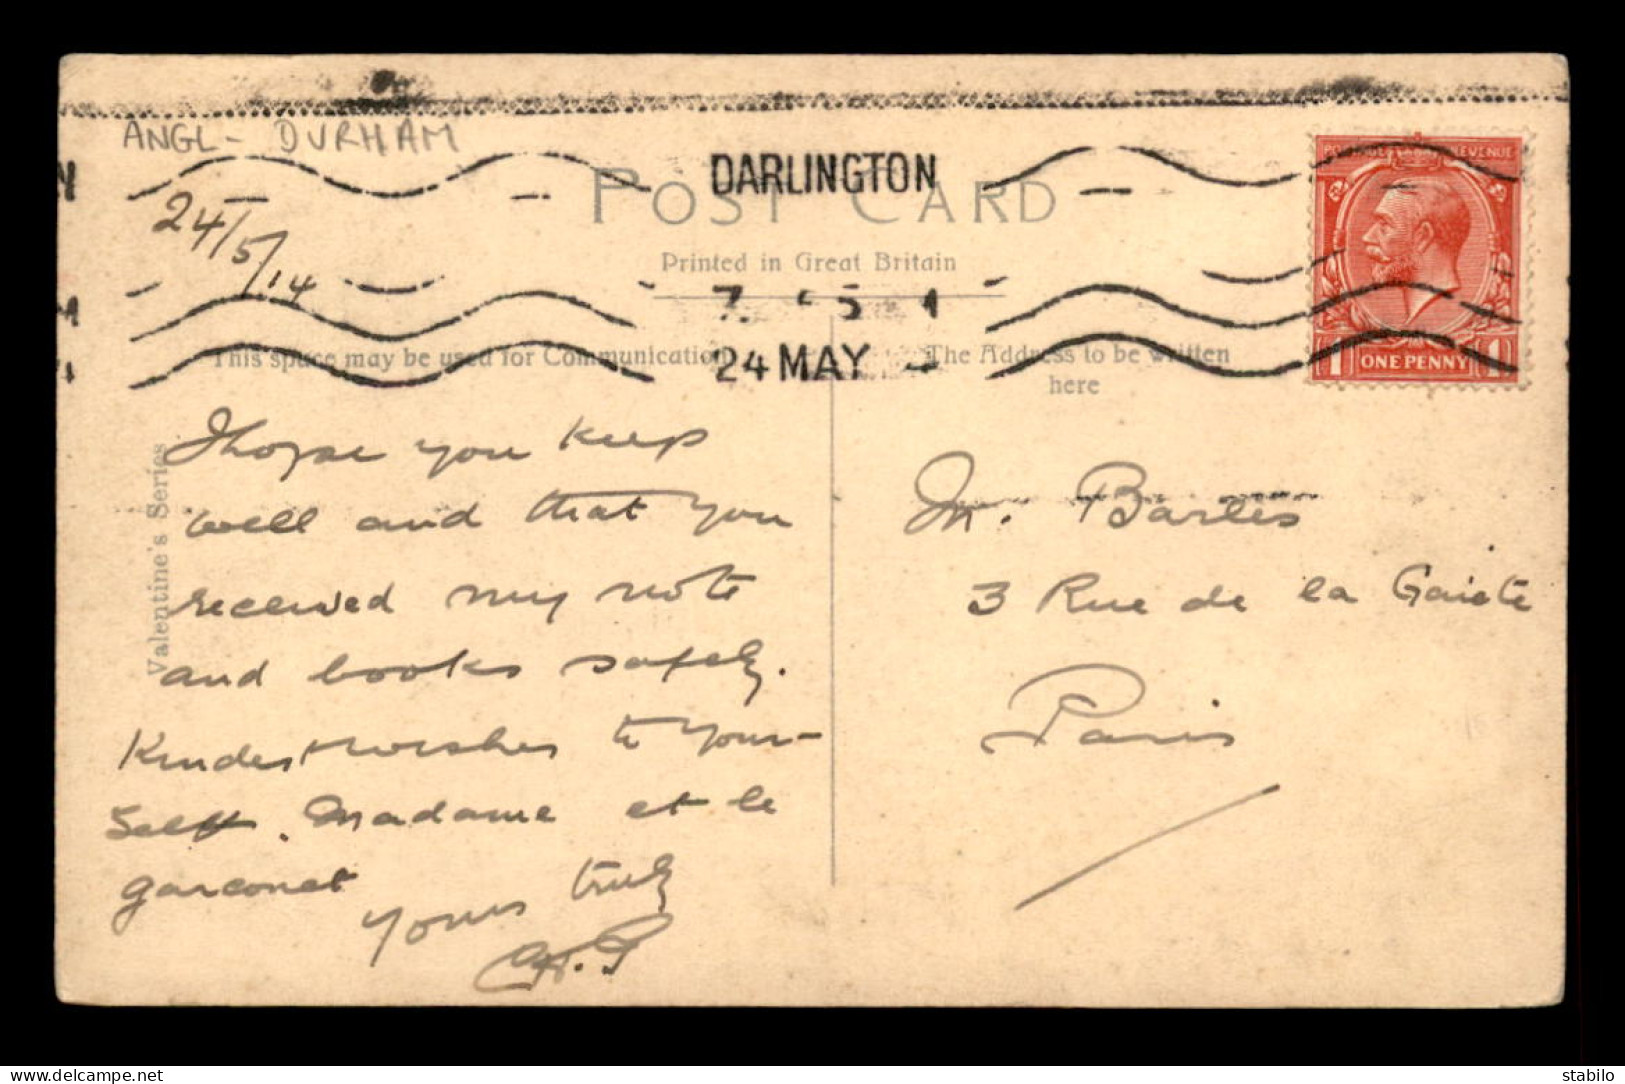 ANGL - DURHAM
DARLINGTON
POST CARD
24/5/14
Printed in Great Britain
24 MAY
This space may be used for Communication
The Address to be written
here
POSTAGE REVENUE
1 ONE PENNY 1
Valentine's Series
I hope you keep
well and that you
received my note
and books safely.
Kindest wishes to your-
self. Madame et le
garconet
Yours truly
M. Bartes
3 Rue de la Gaiete
Paris
stabilo